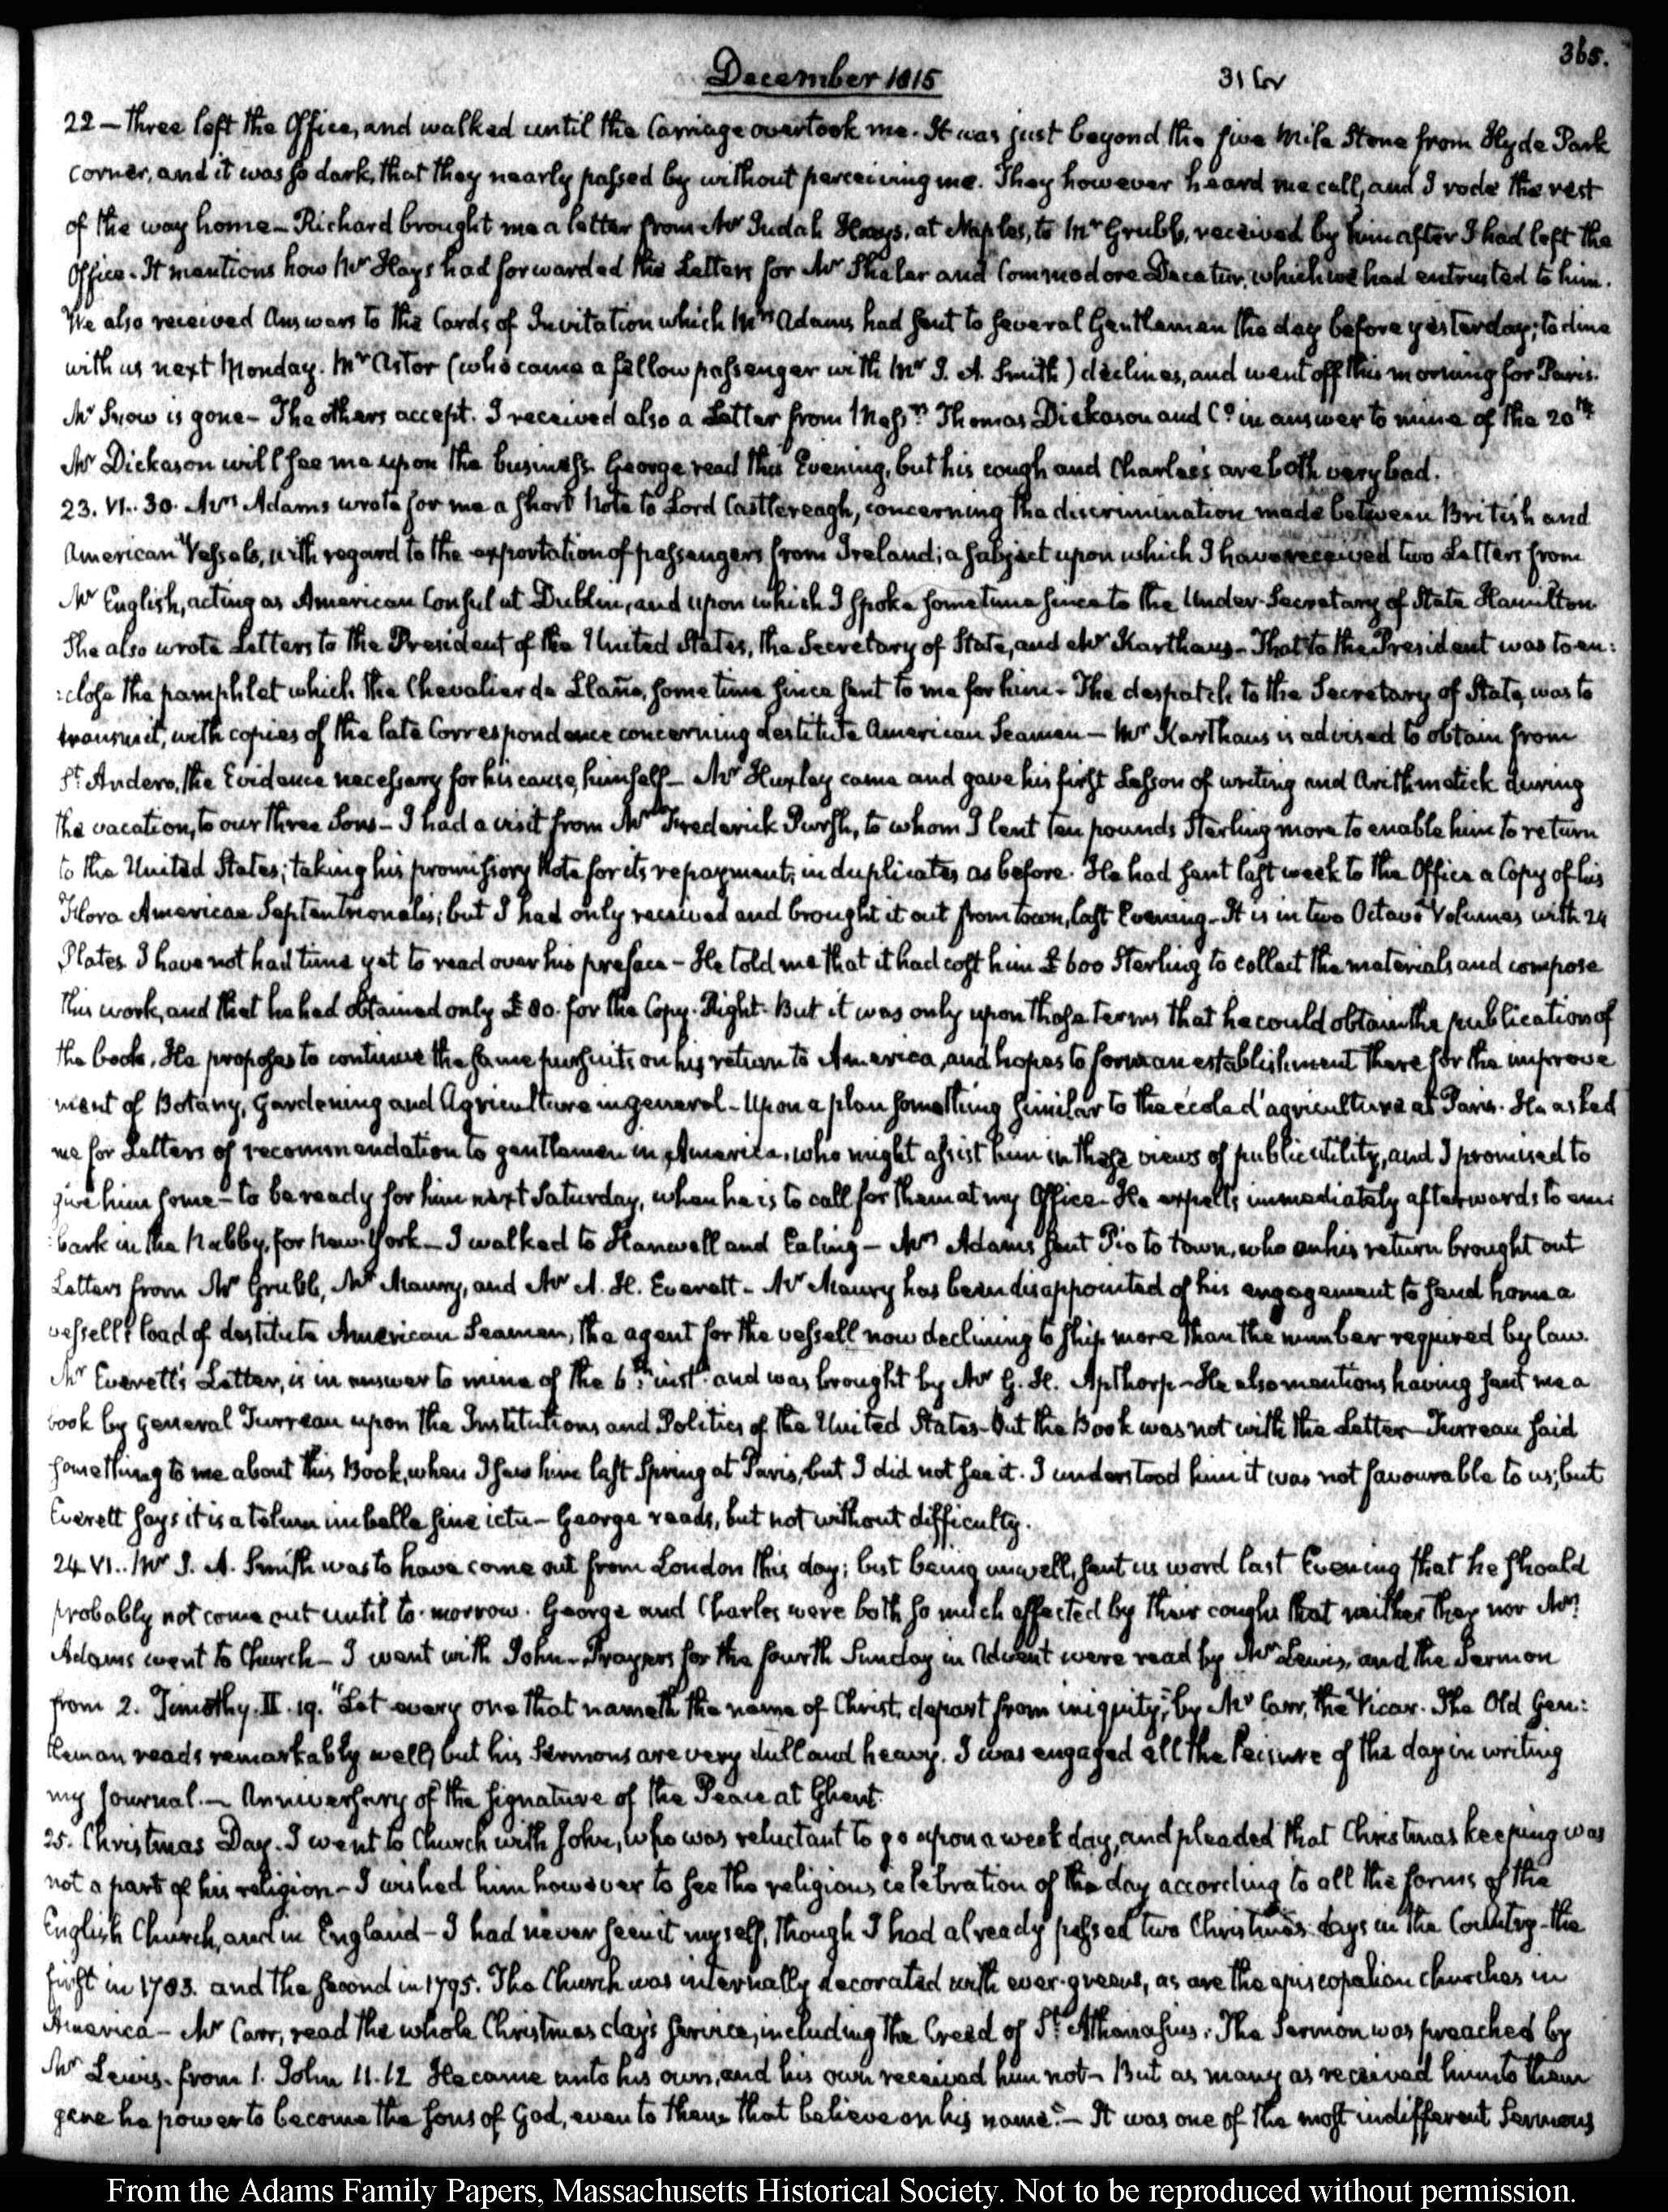 365.
December 1815
31 Cv
22 — three left the Office, and walked until the Carriage overtook me. It was just beyond the five Mile Stone from Hyde Park
corner, and it was so dark, that they nearly passed by without perceiving me. They however heard me call, and I rode the rest
of the way home — Richard brought me a letter from Mr Judah Hays, at Naples, to Mr Grubb, received by him after I had left the
Office. It mentions how Mr Hays had forwarded the Letters for Mr Shaler and Commodore Decatur, which we had entrusted to him.
We also received Answers to the Cards of Invitation which Mrs Adams had sent to several Gentlemen the day before yesterday; to dine
with us next Monday. Mr Astor (who came a fellow passenger with Mr J. A. Smith) declines, and went off this morning for Paris.
Mr Snow is gone — The others accept. I received also a Letter from Messrs Thomas Dickason and Co in answer to mine of the 20th
Mr Dickason will see me upon the business. George read this Evening, but his cough and Charles's are both very bad.
23. VI. 30. Mrs Adams wrote for me a short Note to Lord Castlereagh, concerning the discrimination made between British and
American Vessels, with regard to the exportation of passengers from Ireland; a subject upon which I have received two Letters from
Mr English, acting as American Consul at Dublin, and upon which I spoke sometime since to the Under-Secretary of State Hamilton
She also wrote Letters to the President of the United States, the Secretary of State, and Mr Karthaus — That to the President was to en:
:close the pamphlet which the Chevalier de Llaño, some time since sent to me for him — The despatch to the Secretary of State, was to
transmit, with copies of the late Correspondence concerning destitute American Seamen — Mr Karthaus is advised to obtain from
St Andero, the Evidence necessary for his cause, himself — Mr Huxley came and gave his first Lesson of writing and Arithmetick during
the vacation, to our three Sons — I had a visit from Mr Frederick Pursh, to whom I lent ten pounds Sterling more to enable him to return
to the United States; taking his promissory Note for its repayment, in duplicates as before. He had sent last week to the Office a Copy of his
Flora Americae Septentrionalis; but I had only received and brought it out from town, last Evening — It is in two Octavo Volumes with 24
Plates. I have not had time yet to read over his preface — He told me that it had cost him £600 Sterling to collect the materials and compose
this work, and that he had obtained only £80. for the Copy-Right. But it was only upon those terms that he could obtain the publication of
the book. He proposes to continue the same pursuits on his return to America, and hopes to form an establishment there for the improve
ment of Botany, Gardening and Agriculture in general — Upon a plan something similar to the école d'agriculture at Paris. He asked
me for Letters of recommendation to gentlemen in America, who might assist him in these views of public utility, and I promised to
give him some — to be ready for him next Saturday, when he is to call for them at my Office — He expects immediately afterwards to em:
:bark in the Nabby, for New-York — I walked to Hanwell and Ealing — Mrs Adams sent Pio to town, who on his return brought out
Letters from Mr Grubb, Mr Maury, and Mr A. H. Everett — Mr Maury has been disappointed of his engagement to send home a
vessell's load of destitute American Seamen, the agent for the vessell now declining to ship more than the number required by law.
Mr Everett's Letter, is in answer to mine of the 6th inst and was brought by Mr G. H. Apthorp — He also mentions having sent me a
book by General Turreau upon the Institutions and Politics of the United States — But the Book was not with the Letter — Turreau said
something to me about this Book, when I saw him last Spring at Paris, but I did not see it. I understood him it was not favourable to us; but
Everett says it is a telum imbelle sine ictu — George reads, but not without difficulty.
24. VI.. Mr J. A. Smith was to have come out from London this day; but being unwell, sent us word last Evening that he should
probably not come out until to-morrow. George and Charles were both so much affected by their coughs that neither they nor Mrs
Adams went to Church — I went with John — Prayers for the fourth Sunday in Advent were read by Mr Lewis, and the Sermon
from 2. Timothy. II. 19. "Let every one that nameth the name of Christ, depart from iniquity," by Mr Carr, the Vicar. The Old Gen:
tleman reads remarkably well, but his Sermons are very dull and heavy. I was engaged all the leisure of the day in writing
my Journal. — Anniversary of the signature of the Peace at Ghent.
25. Christmas Day. I went to Church with John, who was reluctant to go upon a week day, and pleaded that Christmas keeping was
not a part of his religion — I wished him however to see the religious celebration of the day according to all the forms of the
English Church, and in England — I had never seen it myself, though I had already passed two Christmas days in the Country — the
first in 1783. and the second in 1795. The Church was internally decorated with ever-greens, as are the episcopalian churches in
America — Mr Carr, read the whole Christmas day's service, including the Creed of St Athanasius. The Sermon was preached by
Mr Lewis. from 1. John 11.12 He came unto his own, and his own received him not — But as many as received him to them
gave he power to become the sons of God, even to them that believe on his name." — It was one of the most indifferent Sermons
From the Adams Family Papers, Massachusetts Historical Society. Not to be reproduced without permission.